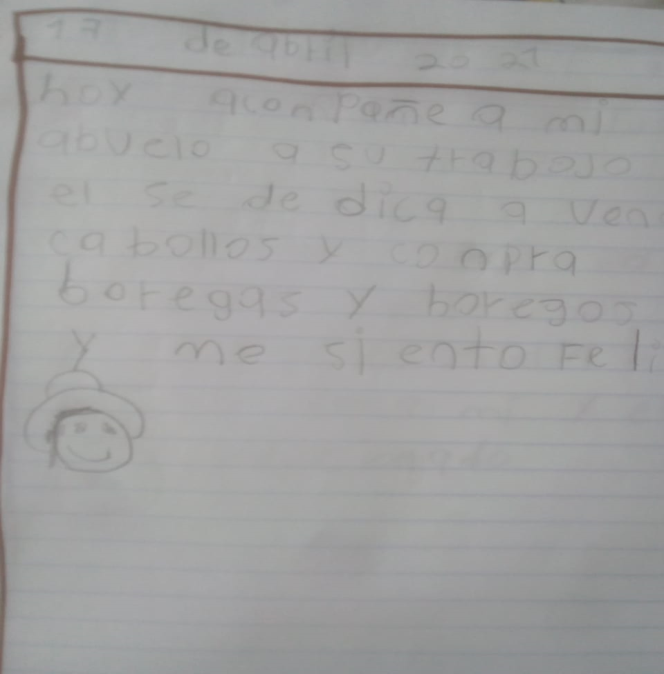 17 de abril 2021
hoy aconpañe a mi
abuelo a su trabajo
el se de dica a ven
caballos y conpra
boregas y boregos
y me si ento Feli